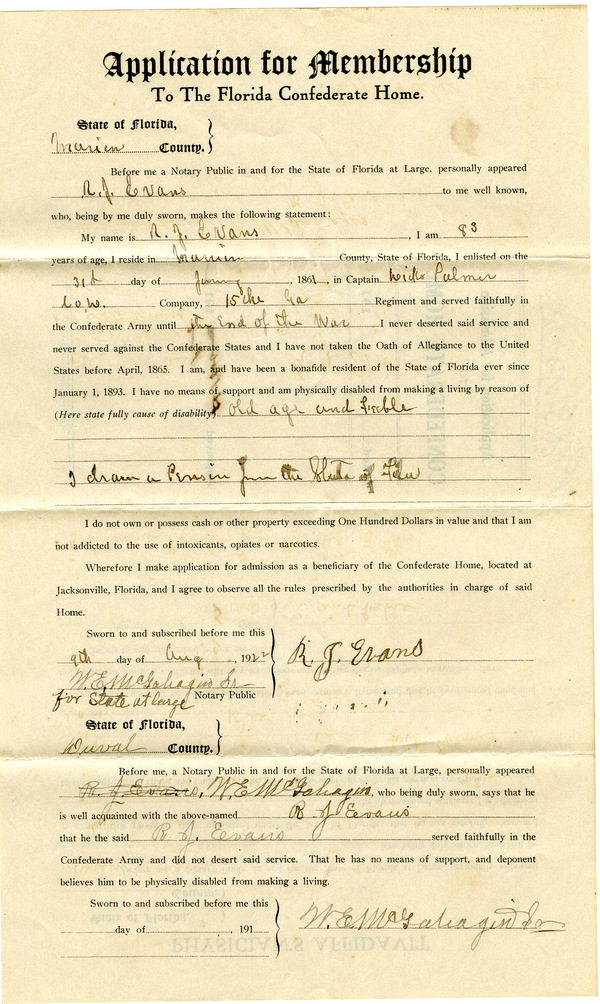 Application for Membership
To The Florida Confederate Home.
State of Florida,
Marion County.
Before me a Notary Public in and for the State of Florida at Large, personally appeared
R. J. Evans to me well known,
who, being by me duly sworn, makes the following statement:
My name is R. J. Evans, I am 83
years of age, I reside in Marion County, State of Florida, I enlisted on the
31st day of 1861, in Captain Palmer
Co. Company, 15 the Ga Regiment and served faithfully in
the Confederate Army until the End of the War I never deserted said service and
never served against the Confederate States and I have not taken the Oath of Allegiance to the United
States before April, 1865. I am, and have been a bonafide resident of the State of Florida ever since
January 1, 1893. I have no means of support and am physically disabled from making a living by reason of
(Here state fully cause of disability) old age and Feeble
I draw a Pension from the State of Fla
I do not own or possess cash or other property exceeding One Hundred Dollars in value and that I am
not addicted to the use of intoxicants, opiates or narcotics.
Wherefore I make application for admission as a beneficiary of the Confederate Home, located at
Jacksonville, Florida, and I agree to observe all the rules prescribed by the authorities in charge of said
Home.
Sworn to and subscribed before me this
9th day of Aug, 1922
R. J. Evans
W. E. McGahagin Jr
for State at large Notary Public
State of Florida,
Duval County.
Before me, a Notary Public in and for the State of Florida at Large, personally appeared
R. J. Evans, W. E. McGahagin, who being duly sworn, says that he
is well acquainted with the above-named R J Evans
that he the said R. J. Evans served faithfully in the
Confederate Army and did not desert said service. That he has no means of support, and deponent
believes him to be physically disabled from making a living.
Sworn to and subscribed before me this
W. E. McGahagin Jr
day of , 191